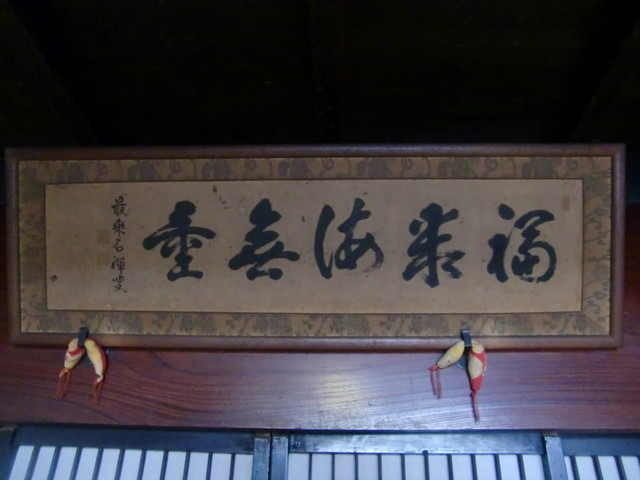 福聚海無量
最乗石禪叟